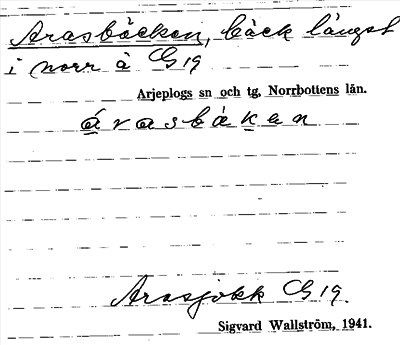 Arasbäcken, bäck längst
i norr å G 19
Arjeplogs sn och tg, Norrbottens län.
árasbäḱen
Arasjokk G 19.
Sigvard Wallström, 1941.